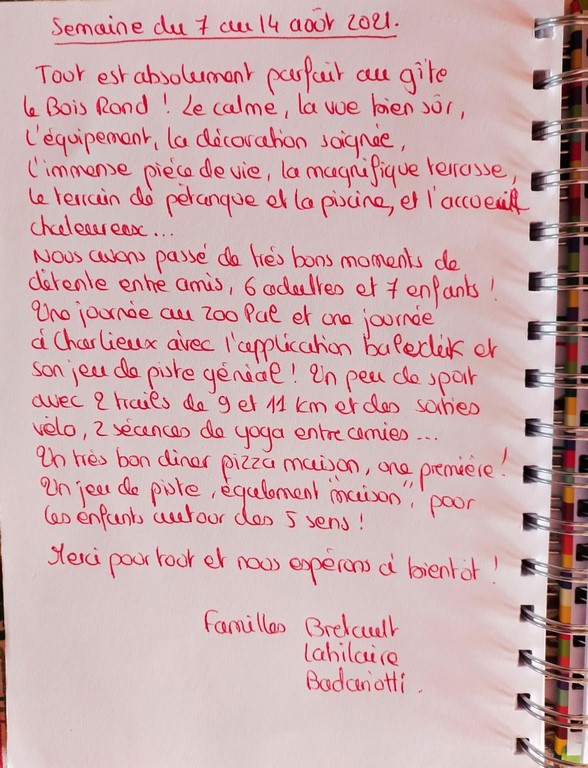 Semaine du 7 au 14 août 2021.
Tout est absolument parfait au gîte
le Bois Rond ! Le calme, la vue bien sûr,
l'équipement, la décoration soignée,
l'immense pièce de vie, la magnifique terrasse,
le terrain de pétanque et la piscine, et l'accueil
chaleureux...
Nous avons passé de très bons moments de
détente entre amis, 6 adultes et 7 enfants !
Une journée au zoo Pal et une journée
à Charlieux avec l'application baludik et
son jeu de piste génial ! Un peu de sport
avec 2 trails de 9 et 11 km et des sorties
vélo, 2 séances de yoga entre amies...
Un très bon diner pizza maison, une première !
Un jeu de piste, également "maison", pour
les enfants autour des 5 sens !
Merci pour tout et nous espérons à bientôt !
Familles Bretault
Lahilaire
Badariotti.